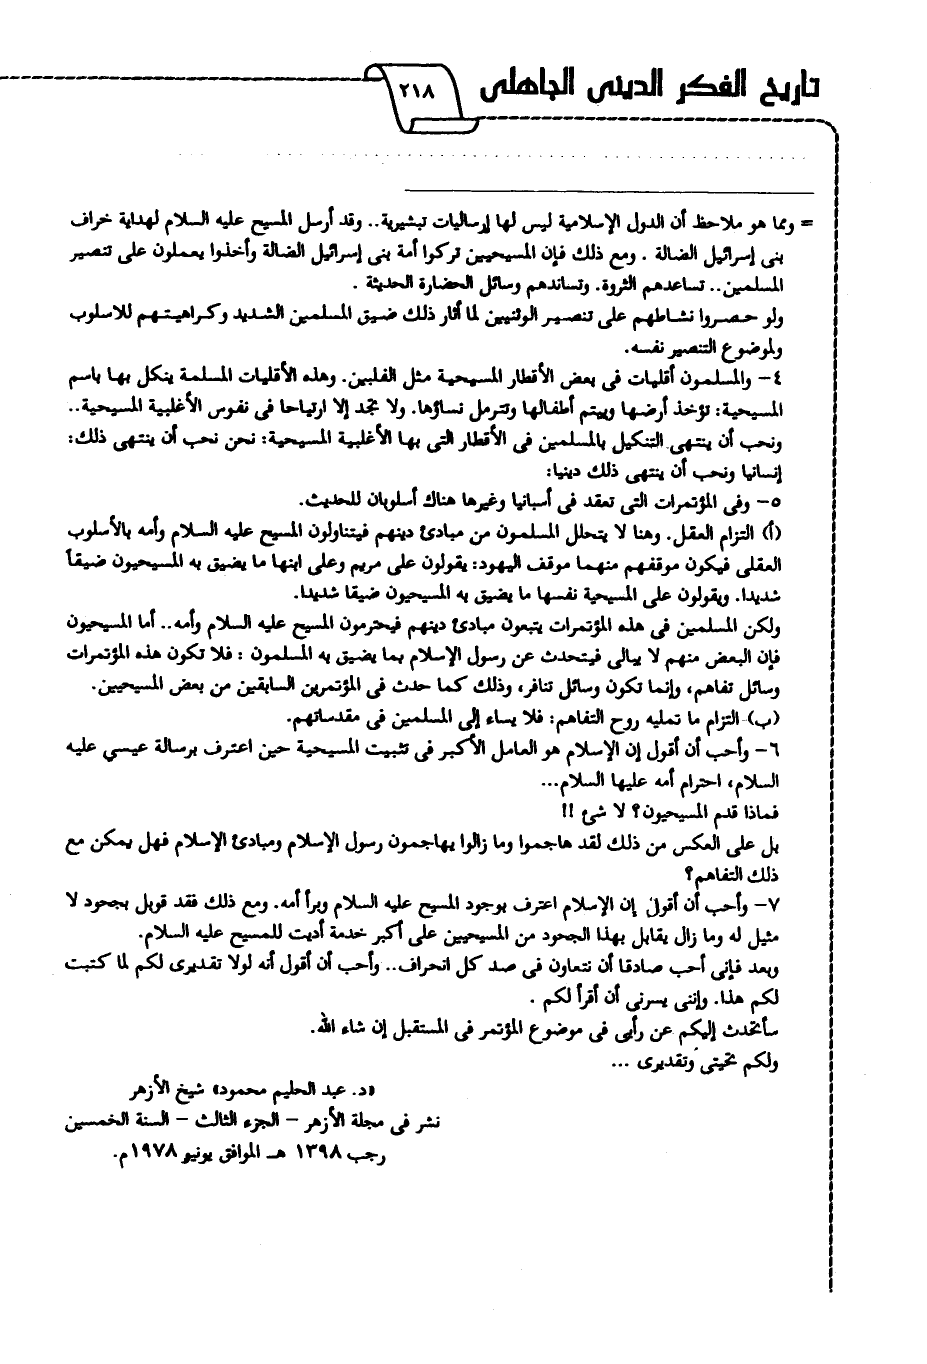 تاريخ الفكر الدينى الجاهلى
٢١٨
= ومما هو ملاحظ أن الدول الإسلامية ليس لها إرساليات تبشيرية.. وقد أرسل المسيح عليه السلام لهداية خراف
بنى إسرائيل الضالة . ومع ذلك فإن المسيحيين تركوا أمة بنى إسرائيل الضالة وأخذوا يعملون على تنصير
المسلمين.. تساعدهم الثروة. وتساندهم وسائل الحضارة الحديثة .
ولو حصروا نشاطهم على تنصير الوثنيين لما أثار ذلك ضيق المسلمين الشديد وكراهيتهم للاسلوب
ولموضوع التنصير نفسه.
٤- والمسلمون أقليات فى بعض الأقطار المسيحية مثل الفلبين. وهذه الأقليات المسلمة ينكل بها باسم
المسيحية: تؤخذ أرضها وييتم أطفالها وتترمل نساؤها. ولا تجد إلا ارتياحا فى نفوس الأغلبية المسيحية..
ونحب أن ينتهى التنكيل بالمسلمين فى الأقطار التى بها الأغلبية المسيحية: نحن نحب أن ينتهى ذلك:
إنسانيا ونحب أن ينتهى ذلك دينيا:
٥- وفى المؤتمرات التى تعقد فى أسبانيا وغيرها هناك أسلوبان للحديث.
(أ) التزام العقل. وهنا لا يتحلل المسلمون من مبادئ دينهم فيتناولون المسيح عليه السلام وأمه بالأسلوب
العقلى فيكون موقفهم منهما موقف اليهود: يقولون على مريم وعلى ابنها ما يضيق به المسيحيون ضيقاً
شديدا. ويقولون على المسيحية نفسها ما يضيق به المسيحيون ضيقا شديدا.
ولكن المسلمين فى هذه المؤتمرات يتبعون مبادئ دينهم فيحترمون المسيح عليه السلام وأمه.. أما المسيحيون
فإن البعض منهم لا يبالى فيتحدث عن رسول الإسلام بما يضيق به المسلمون : فلا تكون هذه المؤتمرات
وسائل تفاهم، وإنما تكون وسائل تنافر، وذلك كما حدث فى المؤتمرين السابقين من بعض المسيحيين.
(ب) التزام ما تمليه روح التفاهم: فلا يساء إلى المسلمين فى مقدساتهم.
٦- وأحب أن أقول إن الإسلام هو العامل الأكبر فى تثبيت المسيحية حين اعترف برسالة عيسي عليه
السلام، احترام أمه عليها السلام...
فماذا قدم المسيحيون؟ لا شئ !!
بل على العكس من ذلك لقد هاجموا وما زالوا يهاجمون رسول الإسلام ومبادئ الإسلام فهل يمكن مع
ذلك التفاهم؟
٧- وأحب أن أقول إن الإسلام اعترف بوجود المسيح عليه السلام وبرأ أمه. ومع ذلك فقد قوبل بجحود لا
مثيل له وما زال يقابل بهذا الجحود من المسيحيين على أكبر خدمة أديت للمسيح عليه السلام.
وبعد فإنى أحب صادقا أن نتعاون فى صد كل انحراف.. وأحب أن أقول أنه لولا تقديرى لكم لما كتبت
لكم هذا. وإننى يسرنى أن أقرأ لكم .
سأتحدث إليكم عن رأيى فى موضوع المؤتمر فى المستقبل إن شاء الله.
ولكم تحيتى وتقديرى ...
«د. عبد الحليم محمود» شيخ الأزهر
نشر فى مجلة الأزهر - الجزء الثالث - السنة الخمسين
رجب ١٣٩٨ هـ الموافق يونيو ١٩٧٨م.